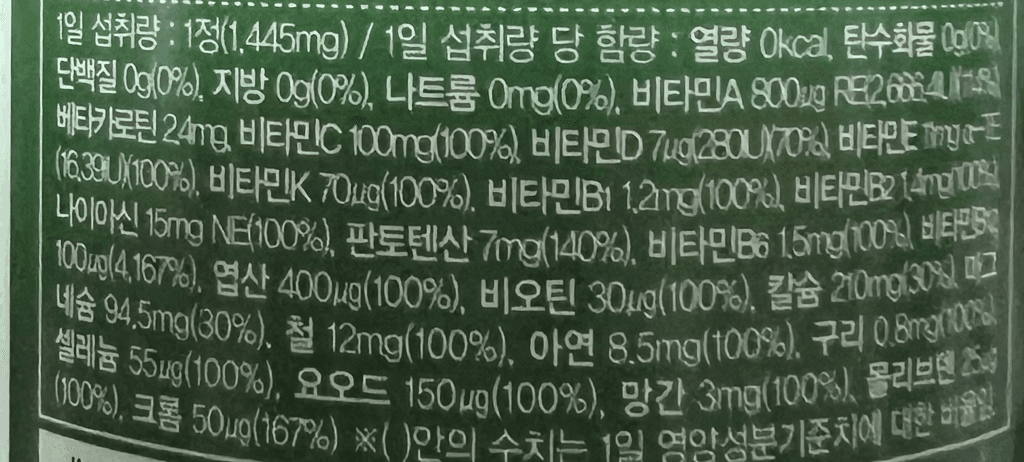 1일 섭취량 : 1정(1,445mg) / 1일 섭취량 당 함량 : 열량 0kcal, 탄수화물 0g(0%)
단백질 0g(0%), 지방 0g(0%), 나트륨 0mg(0%), 비타민A 800μg
베타카로틴 2.4mg, 비타민C 100mg(100%), 비타민D 7μg(280IU)(70%), 비타민E
(16.39IU)(100%), 비타민K 70μg(100%), 비타민B1 1.2mg(100%), 비타민B2 1.4mg(100%)
나이아신 15mg NE(100%), 판토텐산 7mg(140%), 비타민B6 1.5mg(100%)
100μg(4,167%), 엽산 400μg(100%), 비오틴 30μg(100%), 칼슘 210mg(30%), 마그
네슘 94.5mg(30%), 철 12mg(100%), 아연 8.5mg(100%), 구리 0.8mg(100%)
셀레늄 55μg(100%), 요오드 150μg(100%), 망간 3mg(100%), 몰리브덴
(100%), 크롬 50μg(167%) ※( )안의 수치는 1일 영양성분기준치에 대한 비율임